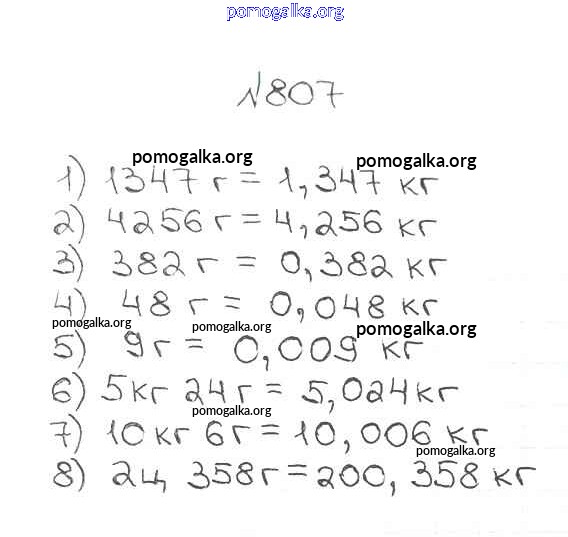 pomogalka.org
№807
pomogalka.org pomogalka.org
1) 1347 г = 1,347 кг
2) 4256 г = 4,256 кг
3) 382 г = 0,382 кг
4) 48 г = 0,048 кг
pomogalka.org pomogalka.org pomogalka.org
5) 9г = 0,009 кг
6) 5кг 24г = 5,024кг
pomogalka.org
7) 10кг 6г = 10,006 кг
pomogalka.org
8) 2ц 358г = 200,358 кг